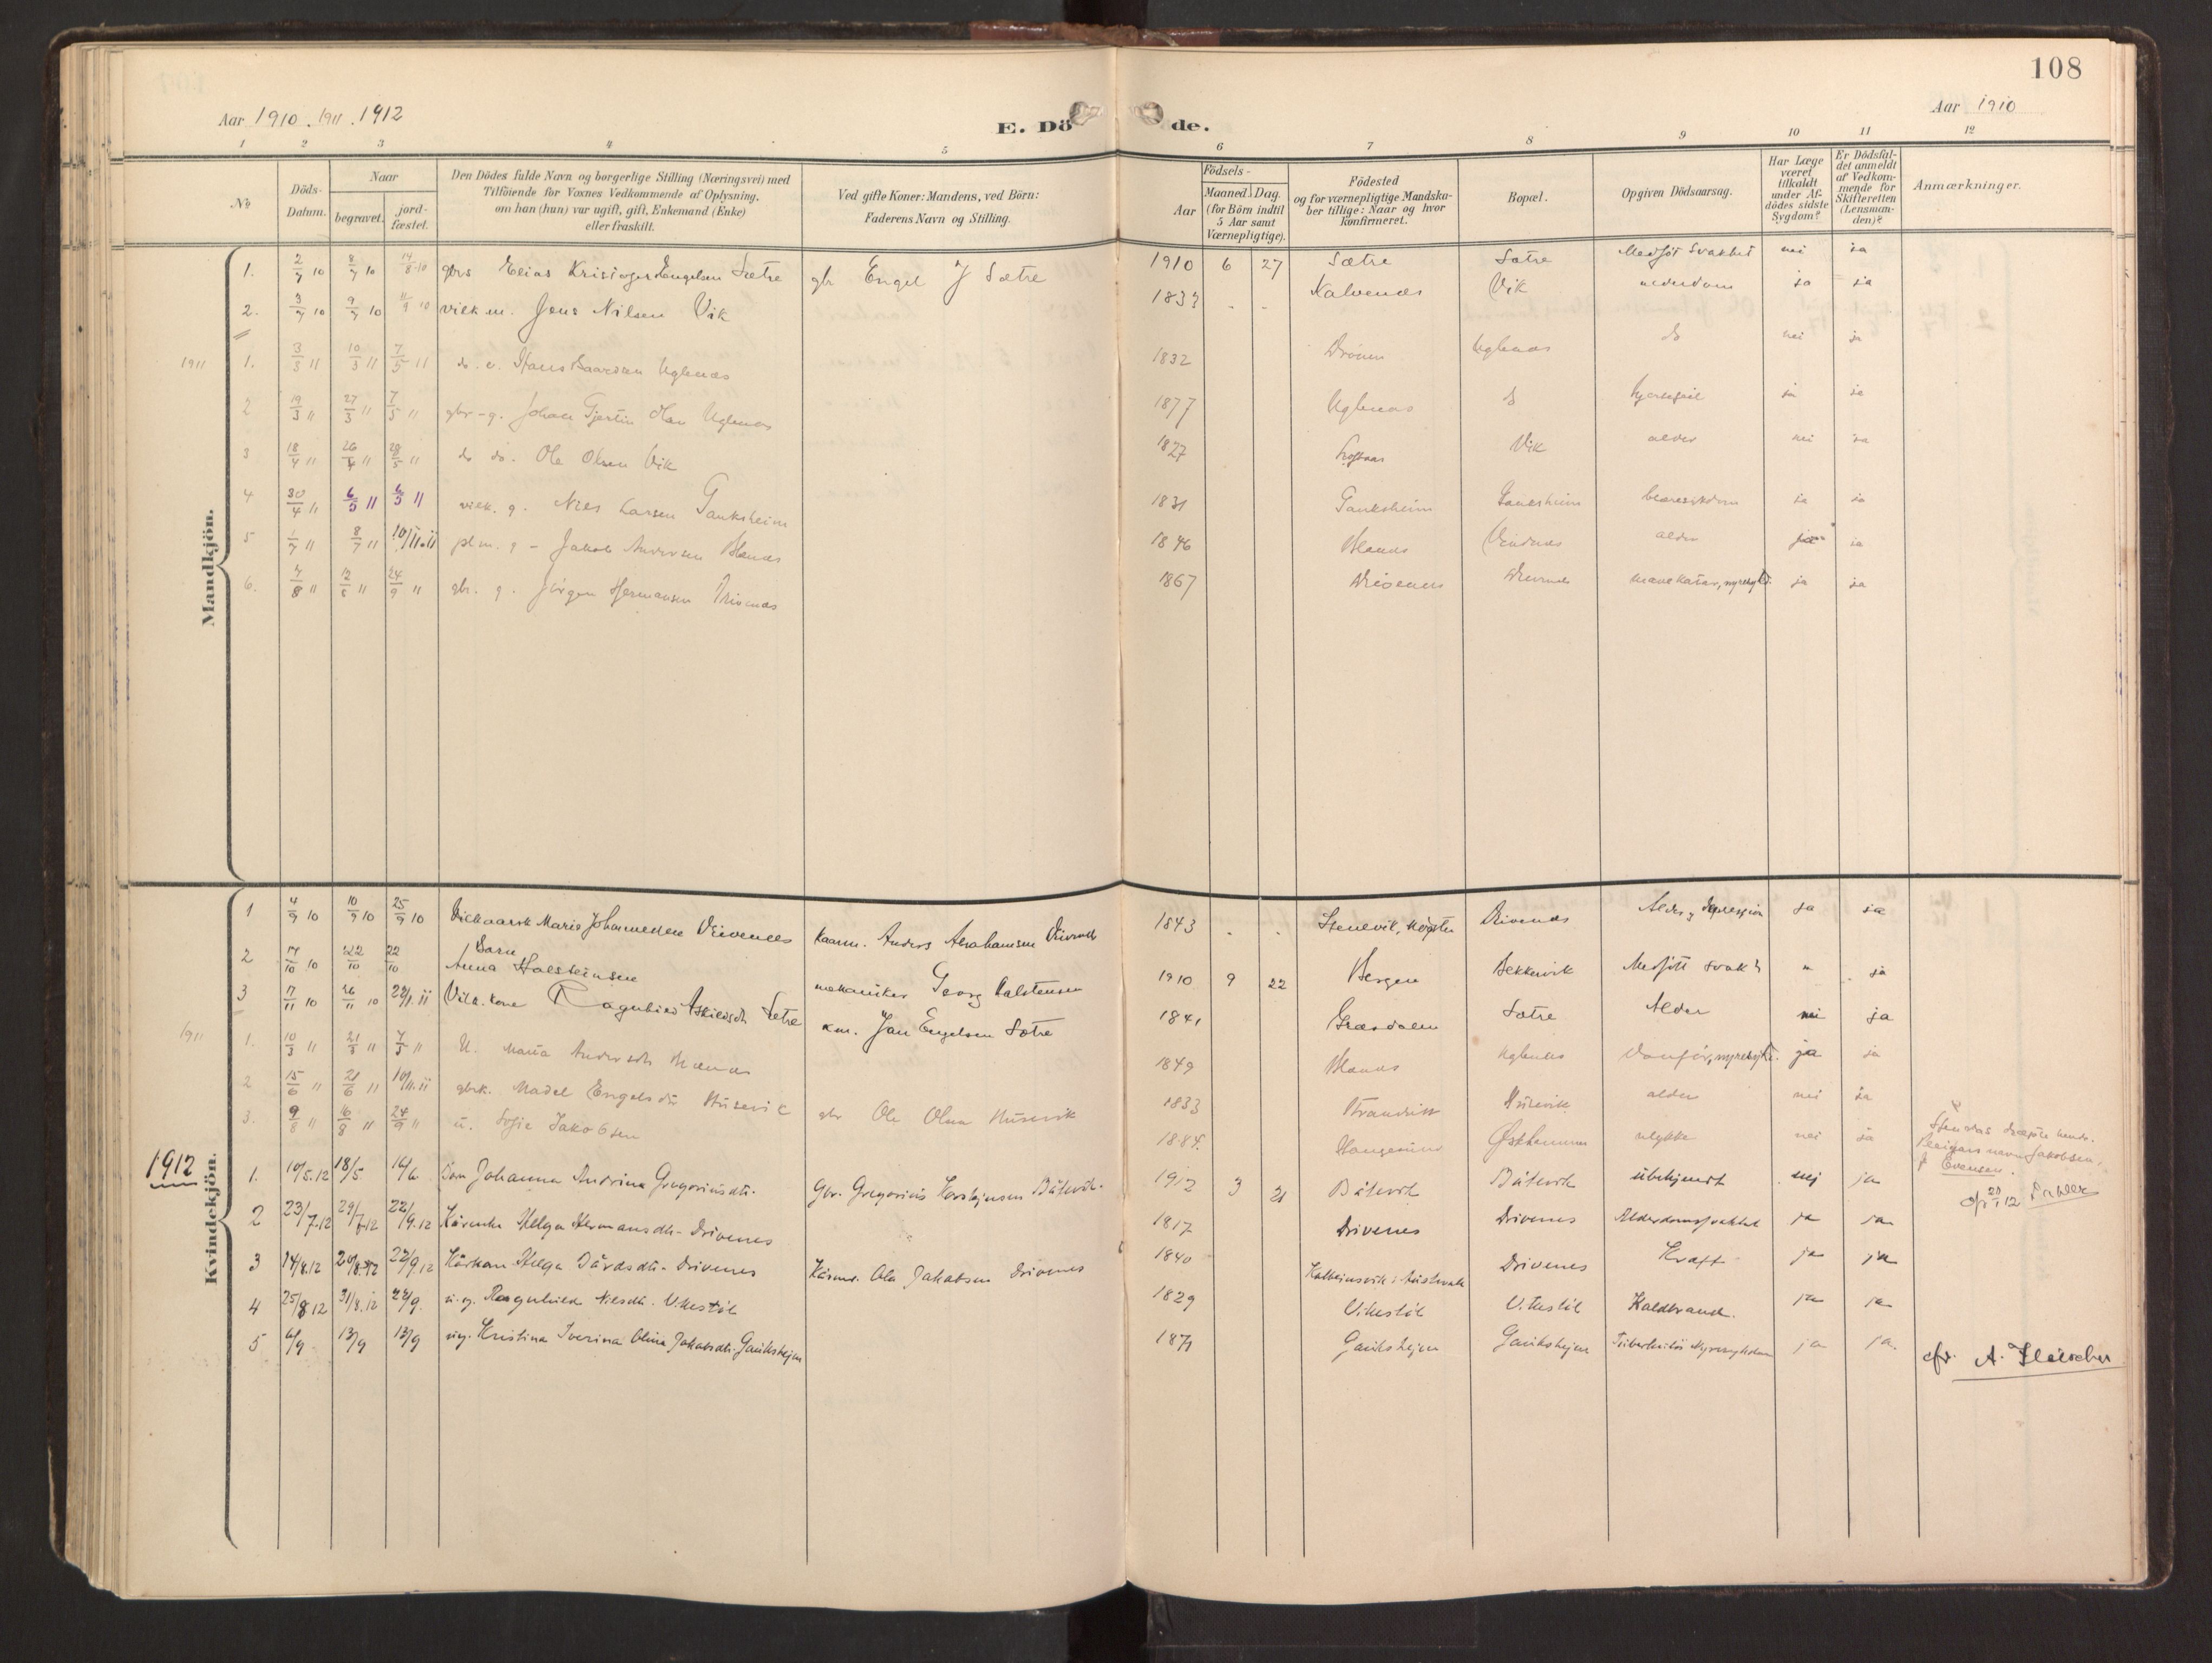 108
Aar 1910. 1911. 1912
E. Dö de.
Aar 1910
1 2 3 4 5 6 7 8 9 10 11 12
No
Döds-Datum.
Naar
begravet.
jord-fæstet.
Den Dödes fulde Navn og borgerlige Stilling (Næringsvei) med
Tilföiende for Voxnes Vedkommende af Oplysning,
om han (hun) var ugift, gift, Enkemand (Enke)
eller fraskilt.
Ved gifte Koner: Mandens, ved Börn:
Faderens Navn og Stilling.
Födsels-
Aar
Maaned. Dag.
(for Börn indtil
5 Aar samt
Værnepligtige).
Födested
og for værnepligtige Mandska-
ber tillige: Naar og hvor
konfirmeret.
Bopæl.
Opgiven Dödsaarsag.
Har Læge
været
tilkaldt
under Af-
dödes sidste
Sygdom?
Er Dödsfal-
det anmeldt
af Vedkom-
mende for
Skifteretten
(Lensman-
den)?
Anmærkninger.
Mandkjön.
1. 2/7 10 8/7 10 14/8 10 gbrs Elias Kristoger Engelsen Sætre gbr Engel J Sætre 1910 6 27 Sætre Sætre Medföt Svakhet nei ja
2. 3/7 10 9/7 10 11/9 10 vilk m. Jens Nilsen Vik 1833 - - Kalvenes Vik alderdom ja ja
1911 1. 3/3 11 10/3 11 7/5 11 do. e. Hans Baardsen Uglenæs 1832 Drönen Uglenæs do nei ja
2 19/3 11 27/3 11 7/5 11 gbr-g. Johan Gjertin Olsen Uglenæs 1877 Uglenæs do hjertefeil ja ja
3 18/4 11 26/4 11 28/5 11 do do. Ole Olsen Vik 1827 Vik alder nei ja
4 30/4 11 6/5 11 6/5 11 vilk. g. Nils Larsen Gauksheim 1831 Gauksheim Gauksheim blæresykdom ja ja
5 1/7 11 8/7 11 10/11.11 plm. g - Jakob Andersen Blænes 1846 Blænes alder ja ja
6. 7/8 11 12/8 11 24/9 11 gbr. g. Jörgen Hermansen Drivenes 1867 Drivenes Drivenes mavekatar, nyresykd. ja ja
Kvindekjön.
1 4/9 10 10/9 10 25/9 10 Vilkaarsk Marie Johannesen Drivenes Kaarm. Anders Abrahamsen Drivenes 1843 - - Stenevik, Møgster Drivenes Alder, depression ja ja
2 17/10 10 22/10 22/10 Barn Anna Halsteinsen mekaniker Georg Halstensen 1910 9 22 Bergen Bekkervik Medfött svakh " ja
3 17/11 10 26/11 10 22/1. 11 Vilk. kone Ragnhild Askildsdtr Sætre km. Jan Engelsen Sætre 1841 Græsdalen Sætre Alder nei ja
1911 1. 10/3 11 21/3 11 7/5 11 U. Maria Andersdtr Blænes 1849 Blænes Uglenæs nyresykd. ja ja
2 15/6 11 21/6 11 10/11.11 gbrk. Madel Engelsdtr Husevik gbr Ole Olsen Husevik 1833 Strandvik Husevik alder nei ja
3. 9/8 11 16/8 11 24/9 11 u. Sofie Jakobsen 1884. Haugesund Østhammer ulykke nei ja
Jakobsen,
Evensen.
1912 1. 10/5.12 18/5 16/6 Barn Johanna Andrina Gregoriusdtr. Gbr. Gregorius Korsbjensen Båtevik. 1912 3 21 Båtevik Båtevik übekjendt nej ja
2 23/7.12 29/7.12 22/9.12 Kårenke Helga Hermansdtr. Drivenes 1817 Drivenes Drivenes Alderdomssvakhet ja ja
3 14/8.12 20/8.12 22/9.12 Kårkone Helga Dåvdsdtr. Drivenes Kårmd. Ola Jakobsen Drivenes 1840 Kalbeinsvik i Austevoll Drivenes Kræft ja ja
4 25/8 12 31/8.12 22/9. u.g. Ragnhild Nilsdtr. Vikestöl 1829 Vikestöl Vikestöl Kaldbrand. ja ja
5 6/9 13/9 13/9 ug. Kristina Iverina Olina Jakobsdtr. Gauksheim 1879 Gauksheim Gauksheim Tüberkülös Nyresykdom ja ja.
cfr. A. Fleischer